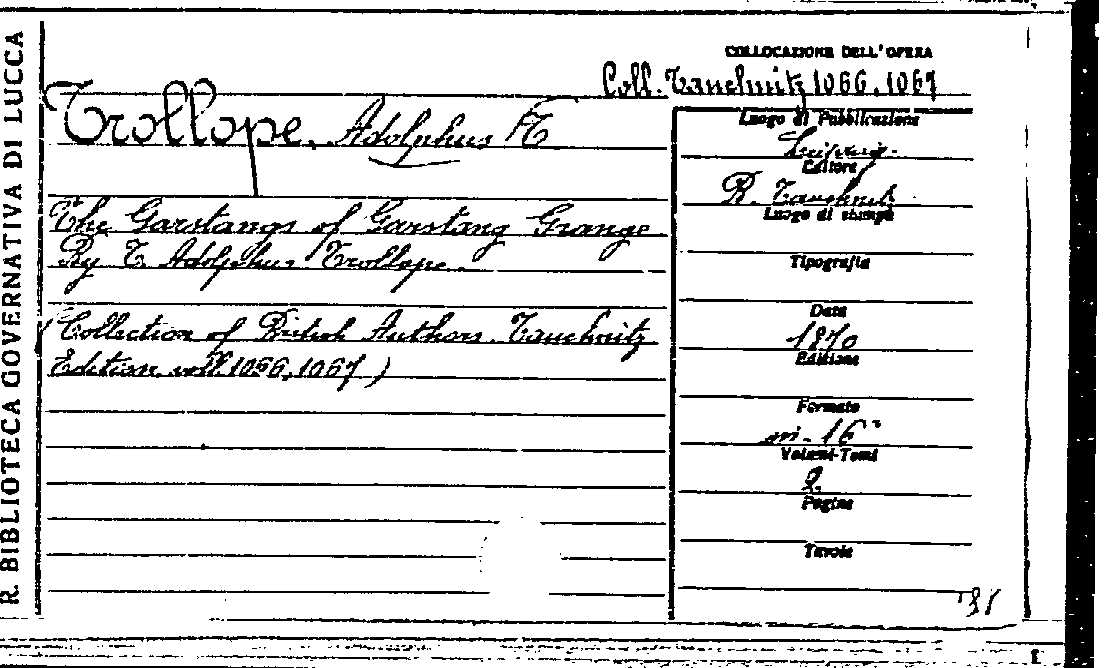 R. BIBLIOTECA GOVERNATIVA DI LUCCA
COLLOCAZIONE DELL'OPERA
Coll. Tauchnitz 1066, 1067
Trollope, Adolphus T
The Garstangs of Garstang Grange.
By T. Adolphus Trollope.
(Collection of British Authors. Tauchnitz
Edition. voll. 1066, 1067)
Luogo di Pubblicazione
Leipzig.
Editore
B. Tauchnitz
Luogo di stampa
Tipografia
Data
1870
Edizione
Formato
in-16°
Volumi-Tomi
2
Pagine
Tavole